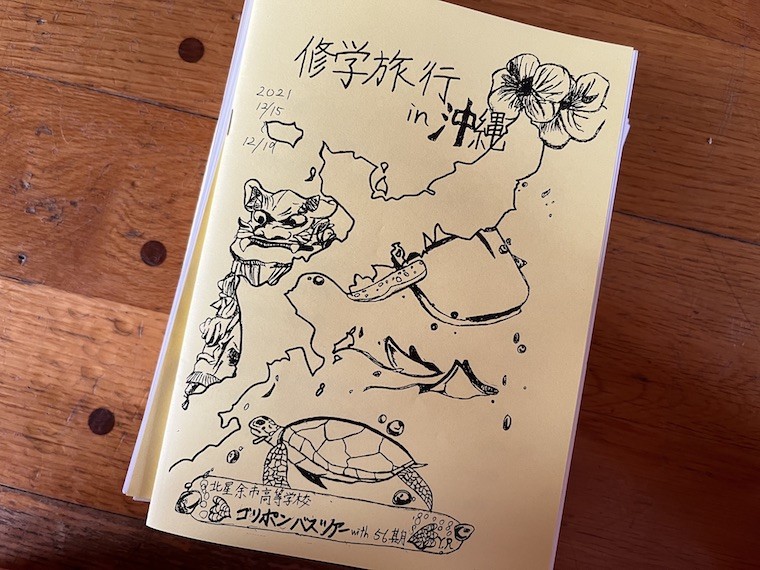 修学旅行
in 沖縄
2021
12/15
12/19
北星余市高等学校
ゴリポンバスツアー with 56期
YR